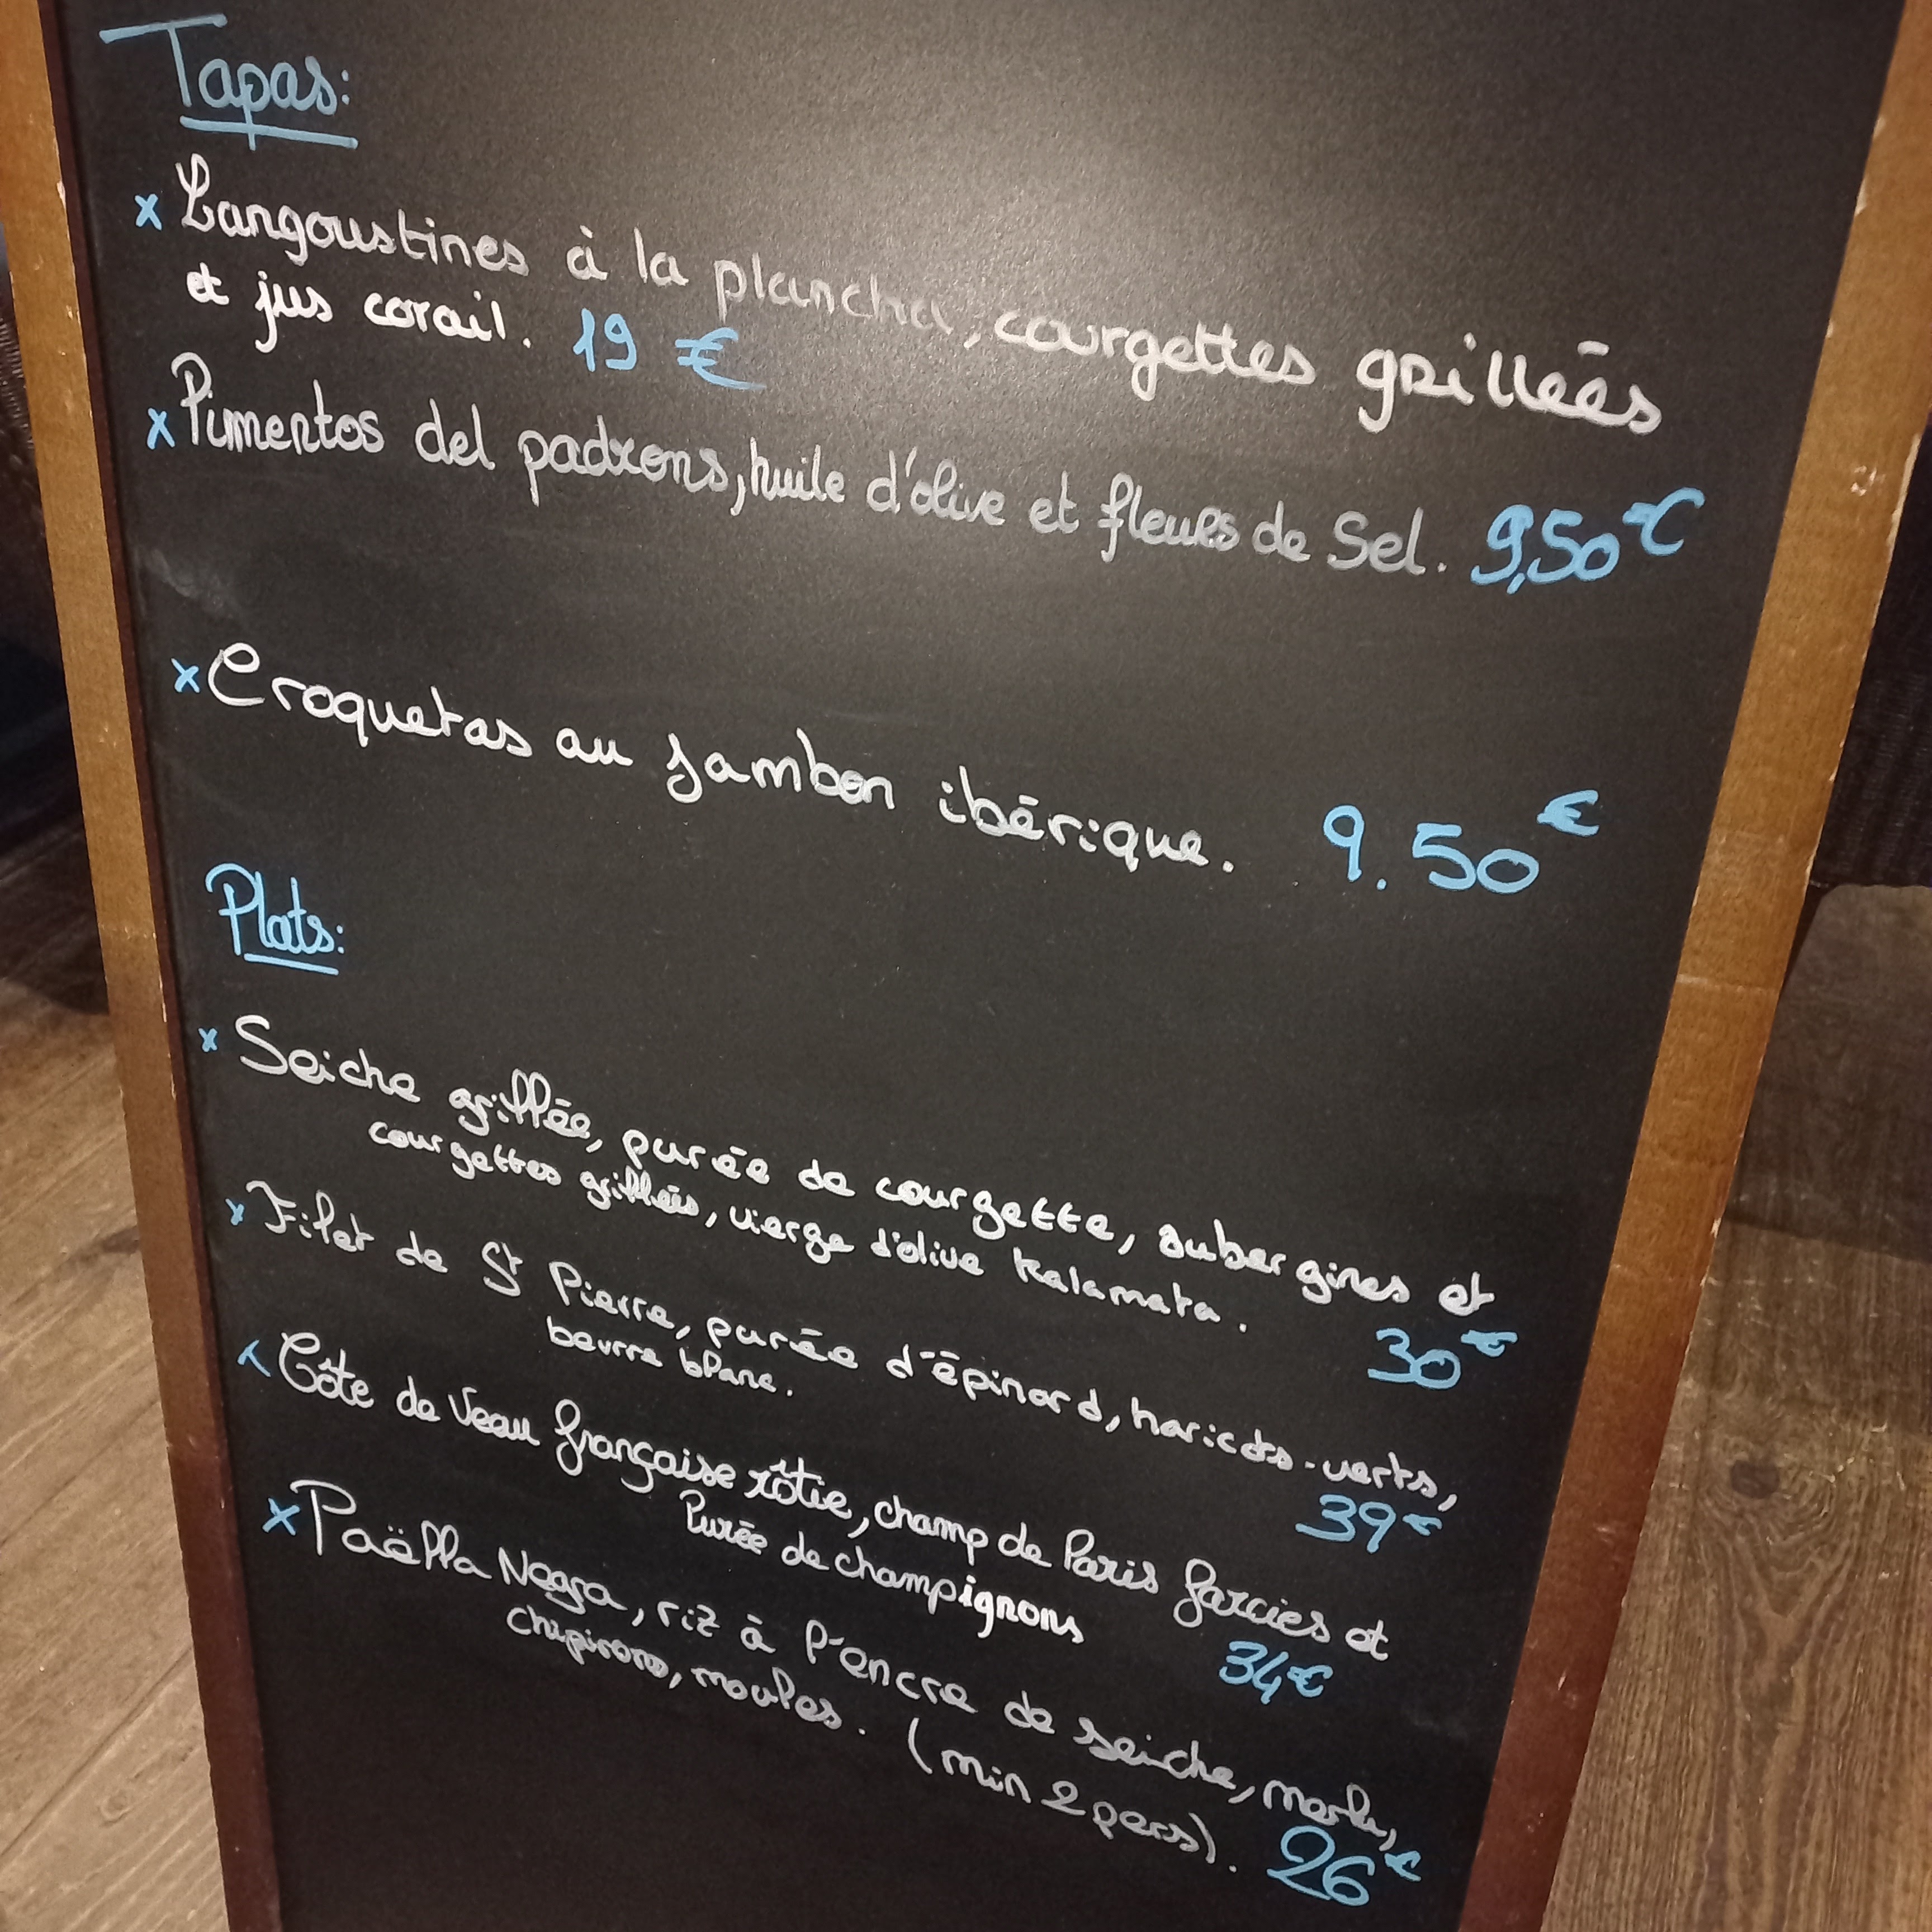 Tapas:
x Langoustines à la plancha, courgettes grillées
et jus corail. 19 €
x Pimentos del padrons, huile d'olive et fleurs de Sel. 9,50 €
x Croquetas au jambon ibérique. 9.50 €
Plats:
x Seiche grillée, purée de courgette, aubergines et
courgettes grillées, vierge d'olive kalamata. 30 €
x Filet de St Pierre, purée d'épinard, haricots-verts,
beurre blanc. 39 €
x Côte de Veau française rôtie, champ de Paris farcies et
Purée de champignons 34 €
x Paëlla Negra, riz à l'encre de seiche, merlu,
chipirons, moules. (min 2 pers). 26 €